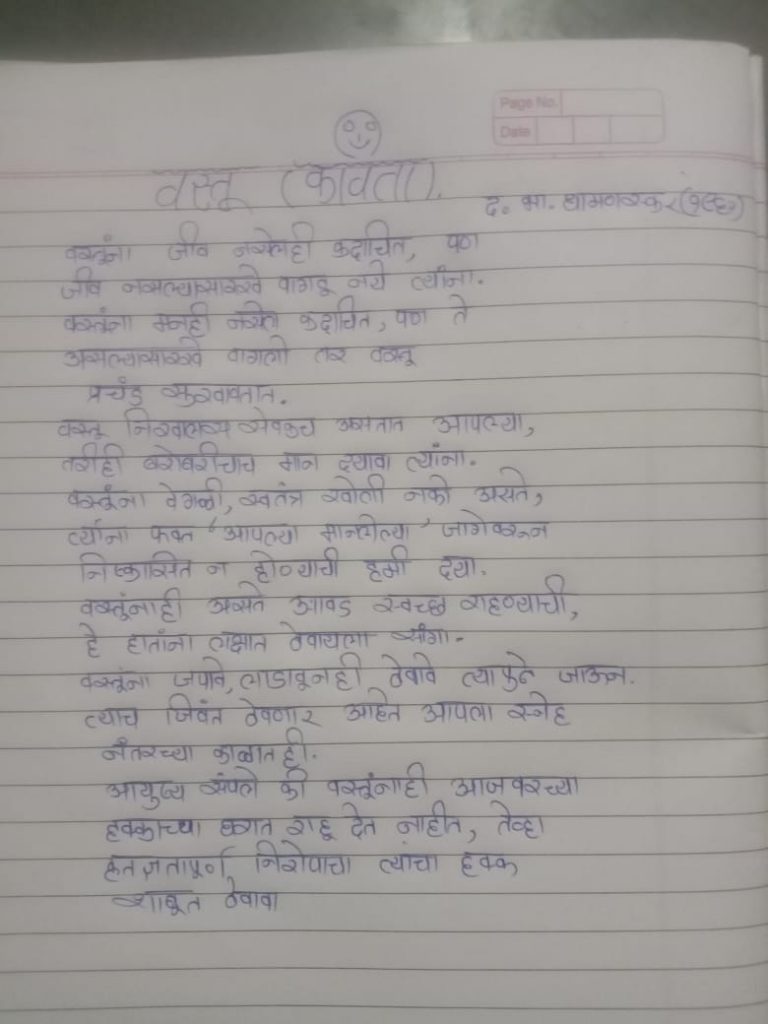 Page No.
Date
वस्तू (कविता).
द. भा. धामणस्कर
वस्तूंना जीव नसेलही कदाचित, पण
जीव नसल्यासारखे वागवू नये त्यांना.
वस्तूंना मनही नसेल कदाचित, पण ते
असल्यासारखे वागलो तर वस्तू
प्रचंड सुखावतात.
वस्तू निखालस सेवकच असतात आपल्या,
तरीही बरोबरीचाच मान दयावा त्यांना.
वस्तूंना वेगळी, स्वतंत्र खोली नको असते,
त्यांना फक्त 'आपल्या मानलेल्या' जागेवरून
निष्कासित न होण्याची हमी दया.
वस्तूंनाही असते आवड स्वच्छ राहण्याची,
हे हातांना लक्षात ठेवायला सांगा.
वस्तूंना जपावे, लाडावूनही ठेवावे त्यापुढे जाऊन.
त्याच जिवंत ठेवणार आहेत आपला स्नेह
नंतरच्या काळातही.
आयुष्य संपले की वस्तूंनाही आजवरच्या
हक्काच्या घरात राहू देत नाहीत, तेव्हा
कृतज्ञतापूर्ण निरोपाचा त्यांचा हक्क
शाबूत ठेवावा